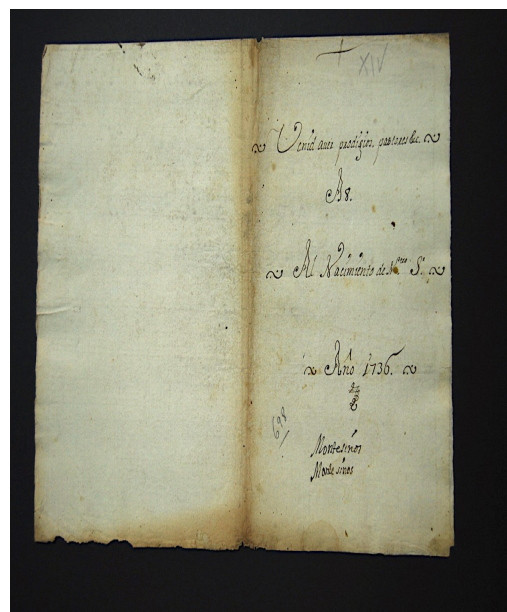 XIV
Venid aver prodigios, pastores &c.
A 8.
Al Nacimiento de Ntro Sr
Año 1736.
698
Montesinos
Montesinos